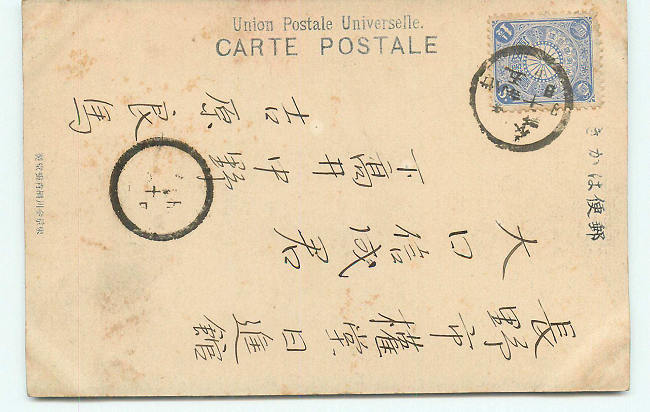 Union Postale Universelle.
CARTE POSTALE
郵便はかき
長野市權堂日進館
大口信成君
下高井中野
吉原良馬